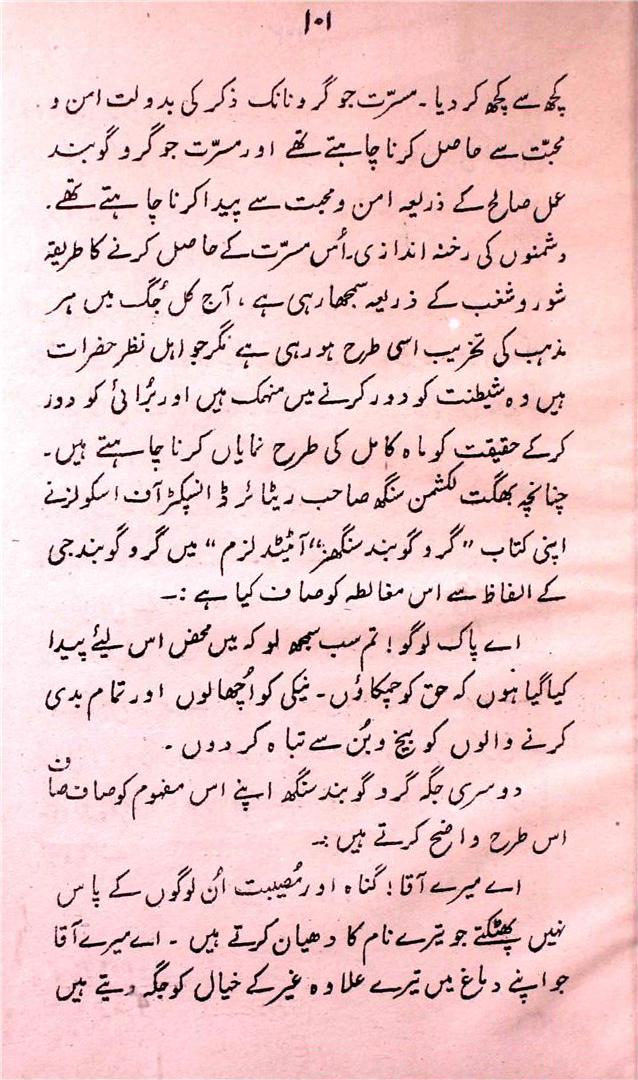 ۱۰۱
کچھ سے کچھ کر دیا۔ مسرّت جو گرو نانک ذکر کی بدولت امن و
محبّت سے حاصل کرنا چاہتے تھے اور مسرّت جو گرو گوبند
عمل صالح کے ذریعہ امن و محبت سے پیدا کرنا چاہتے تھے۔
دشمنوں کی رخنہ اندازی۔ اُس مسرّت کے حاصل کرنے کا طریقہ
شور و شغب کے ذریعہ سمجھا رہی ہے، آج کل جُگ میں ہر
مذہب کی تخریب اسی طرح ہو رہی ہے مگر جو اہل نظر حضرات
ہیں وہ شیطنت کو دور کرنے میں منہمک ہیں اور بُرائی کو دور
کرکے حقیقت کو ماہ کامل کی طرح نمایاں کرنا چاہتے ہیں۔
چنانچہ بھگت لکشمن سنگھ صاحب ریٹائرڈ انسپکٹر آف اسکولز نے
اپنی کتاب "گرو گوبند سنگھز" آئیڈلزم" میں گرو گوبند جی
کے الفاظ سے اس مغالطہ کو صاف کیا ہے :۔
اے پاک لوگو! تم سب سمجھ لو کہ میں محض اس لیئے پیدا
کیا گیا ہوں کہ حق کو چمکاؤں۔ نیکی کو اُچھالوں اور تمام بدی
کرنے والوں کو بیخ و بُن سے تباہ کر دوں۔
دوسری جگہ گرو گوبند سنگھ اپنے اس مفہوم کو صاف صاف
اس طرح واضح کرتے ہیں :۔
اے میرے آقا! گناہ اور مُصیبت اُن لوگوں کے پاس
نہیں پھٹکتے جو تیرے نام کا دھیان کرتے ہیں۔ اے میرے آقا
جو اپنے دماغ میں تیرے علاوہ غیر کے خیال کو جگہ دیتے ہیں